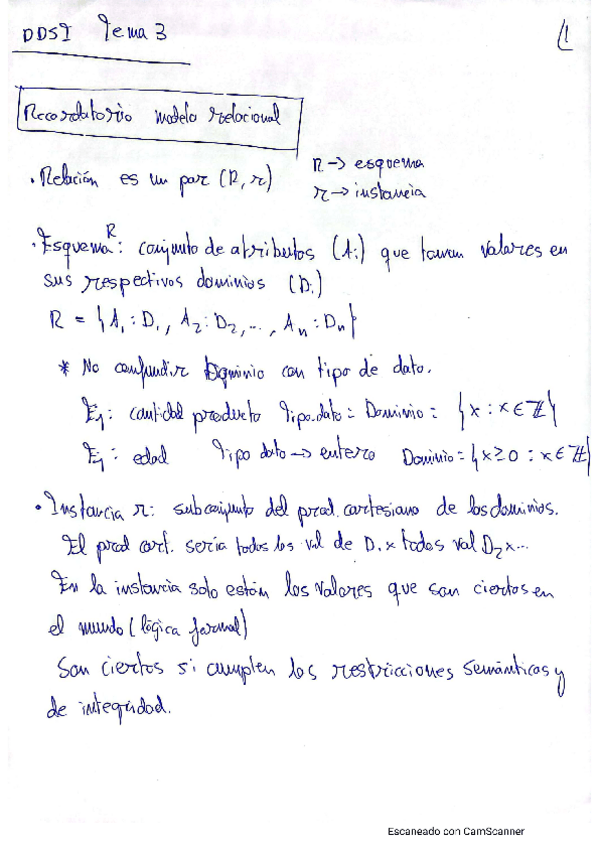 DDSI Tema 3
1
Recordatorio modelo relacional
· Relación es un par (R, r)
R → esquema
r → instancia
· Esquema R: conjunto de atributos (Ai) que toman valores en
sus respectivos dominios (Di)
R = {A1 : D1, A2 : D2, ..., An : Dn}
* No confundir Dominio con tipo de dato.
Ej: cantidad producto Tipo.dato = Dominio = {x : x ∈ ℤ}
Ej: edad Tipo dato → entero Dominio = {x ≥ 0 : x ∈ ℤ}
· Instancia r: subconjunto del prod. cartesiano de los dominios.
El prod cart. sería todos los val de D1 x todos val D2 x...
En la instancia solo están los valores que son ciertos en
el mundo (lógica formal)
Son ciertos si cumplen las restricciones semánticas y
de integridad.
Escaneado con CamScanner